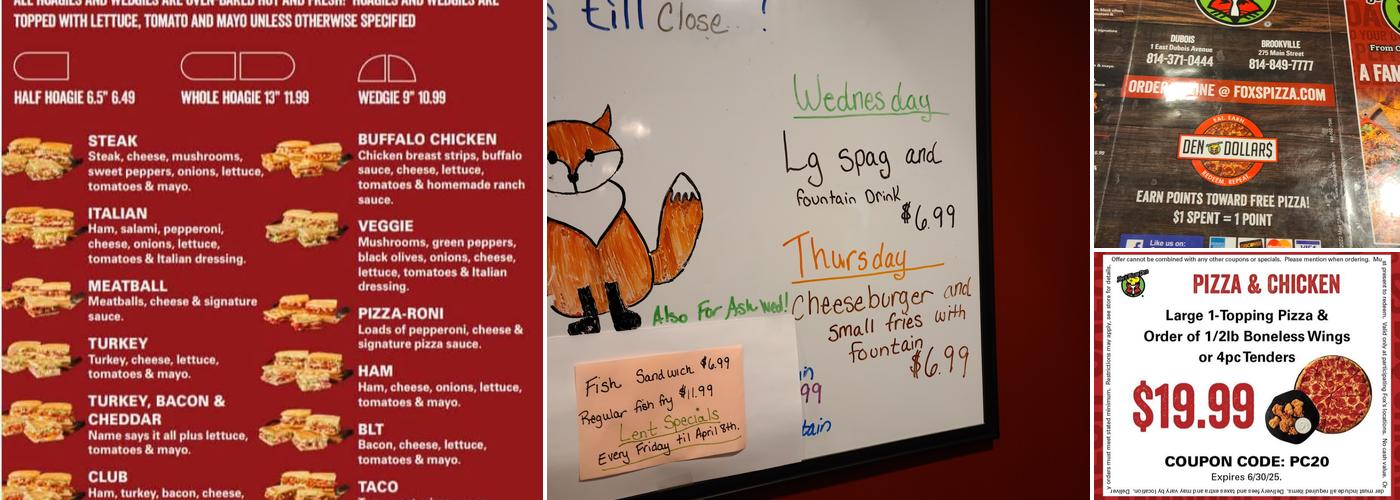 ALL HOAGIES AND WEDGIES ARE OVEN-BAKED HOT AND FRESH! HOAGIES AND WEDGIES ARE
TOPPED WITH LETTUCE, TOMATO AND MAYO UNLESS OTHERWISE SPECIFIED
HALF HOAGIE 6.5" 6.49
WHOLE HOAGIE 13" 11.99
WEDGIE 9" 10.99
STEAK
Steak, cheese, mushrooms,
sweet peppers, onions, lettuce,
tomatoes & mayo.
ITALIAN
Ham, salami, pepperoni,
cheese, onions, lettuce,
tomatoes & Italian dressing.
MEATBALL
Meatballs, cheese & signature
sauce.
TURKEY
Turkey, cheese, lettuce,
tomatoes & mayo.
TURKEY, BACON &
CHEDDAR
Name says it all plus lettuce,
tomatoes & mayo.
CLUB
Ham, turkey, bacon, cheese,
BUFFALO CHICKEN
Chicken breast strips, buffalo
sauce, cheese, lettuce,
tomatoes & homemade ranch
sauce.
VEGGIE
Mushrooms, green peppers,
black olives, onions, cheese,
lettuce, tomatoes & Italian
dressing.
PIZZA-RONI
Loads of pepperoni, cheese &
signature pizza sauce.
HAM
Ham, cheese, onions, lettuce,
tomatoes & mayo.
BLT
Bacon, cheese, lettuce,
tomatoes & mayo.
TACO
s till Close !
Wednesday
Lg spag and
fountain Drink
$6.99
Thursday
Cheeseburger and
small fries with
fountain
$6.99
Also For Ash wed!
Fish Sandwich $6.99
Regular fish fry $11.99
Lent Specials
Every Friday til April 8th.
in
99
tain
DUBOIS
1 East Dubois Avenue
814-371-0444
BROOKVILLE
275 Main Street
814-849-7777
ORDER ONLINE @ FOXSPIZZA.COM
EAT. EARN.
DEN DOLLAR$
REDEEM. REPEAT.
EARN POINTS TOWARD FREE PIZZA!
$1 SPENT = 1 POINT
Like us on:
VISA
From O
A FAN
Offer cannot be combined with any other coupons or specials. Please mention when ordering.
PIZZA & CHICKEN
Large 1-Topping Pizza &
Order of 1/2lb Boneless Wings
or 4pc Tenders
$19.99
COUPON CODE: PC20
Expires 6/30/25.